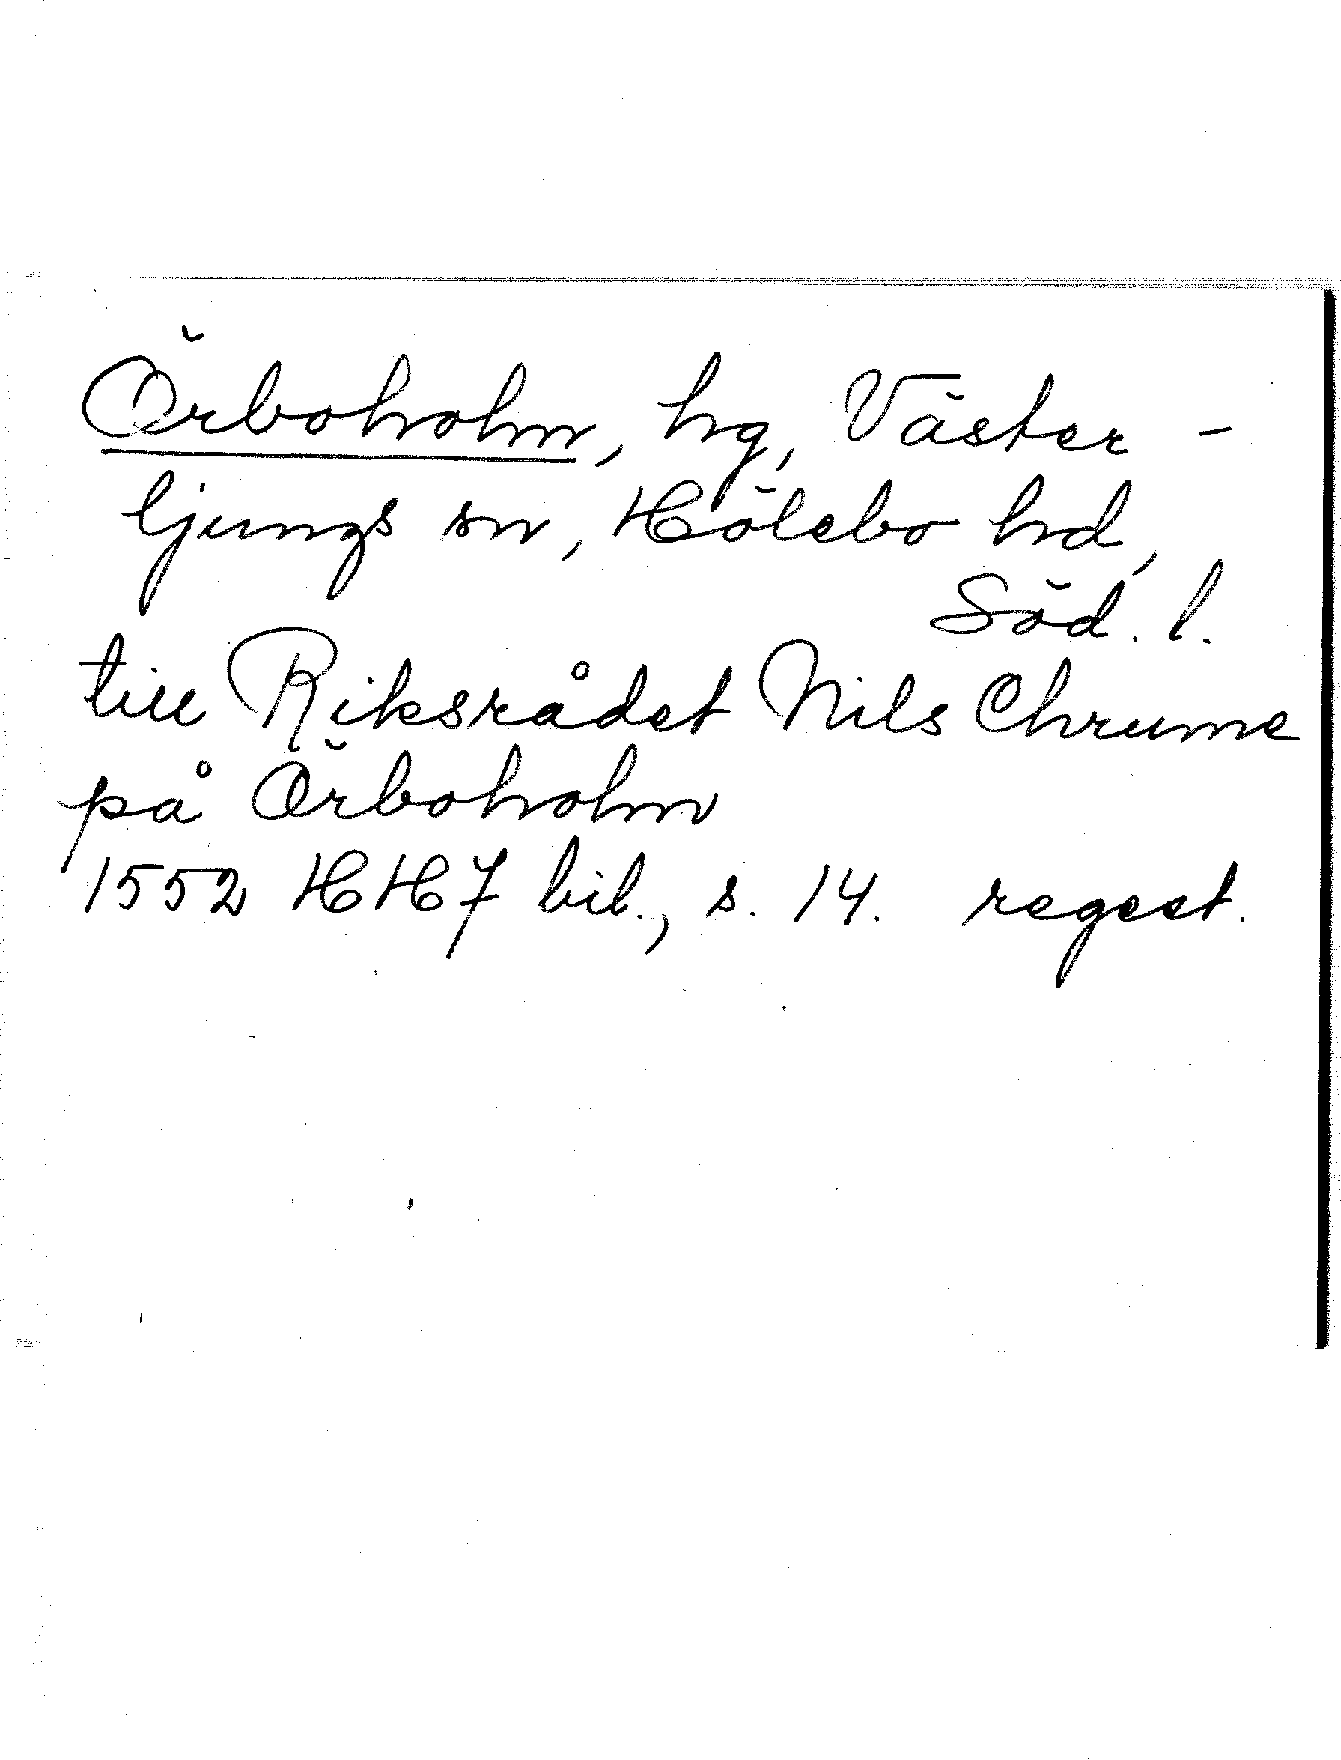 Örboholm, hg, Väster-
ljungs sn, Hölebo hd,
Söd. l.
till Riksrådet Nils Chrume
på Örboholm
1552 HH7 bil., s. 14. regest.